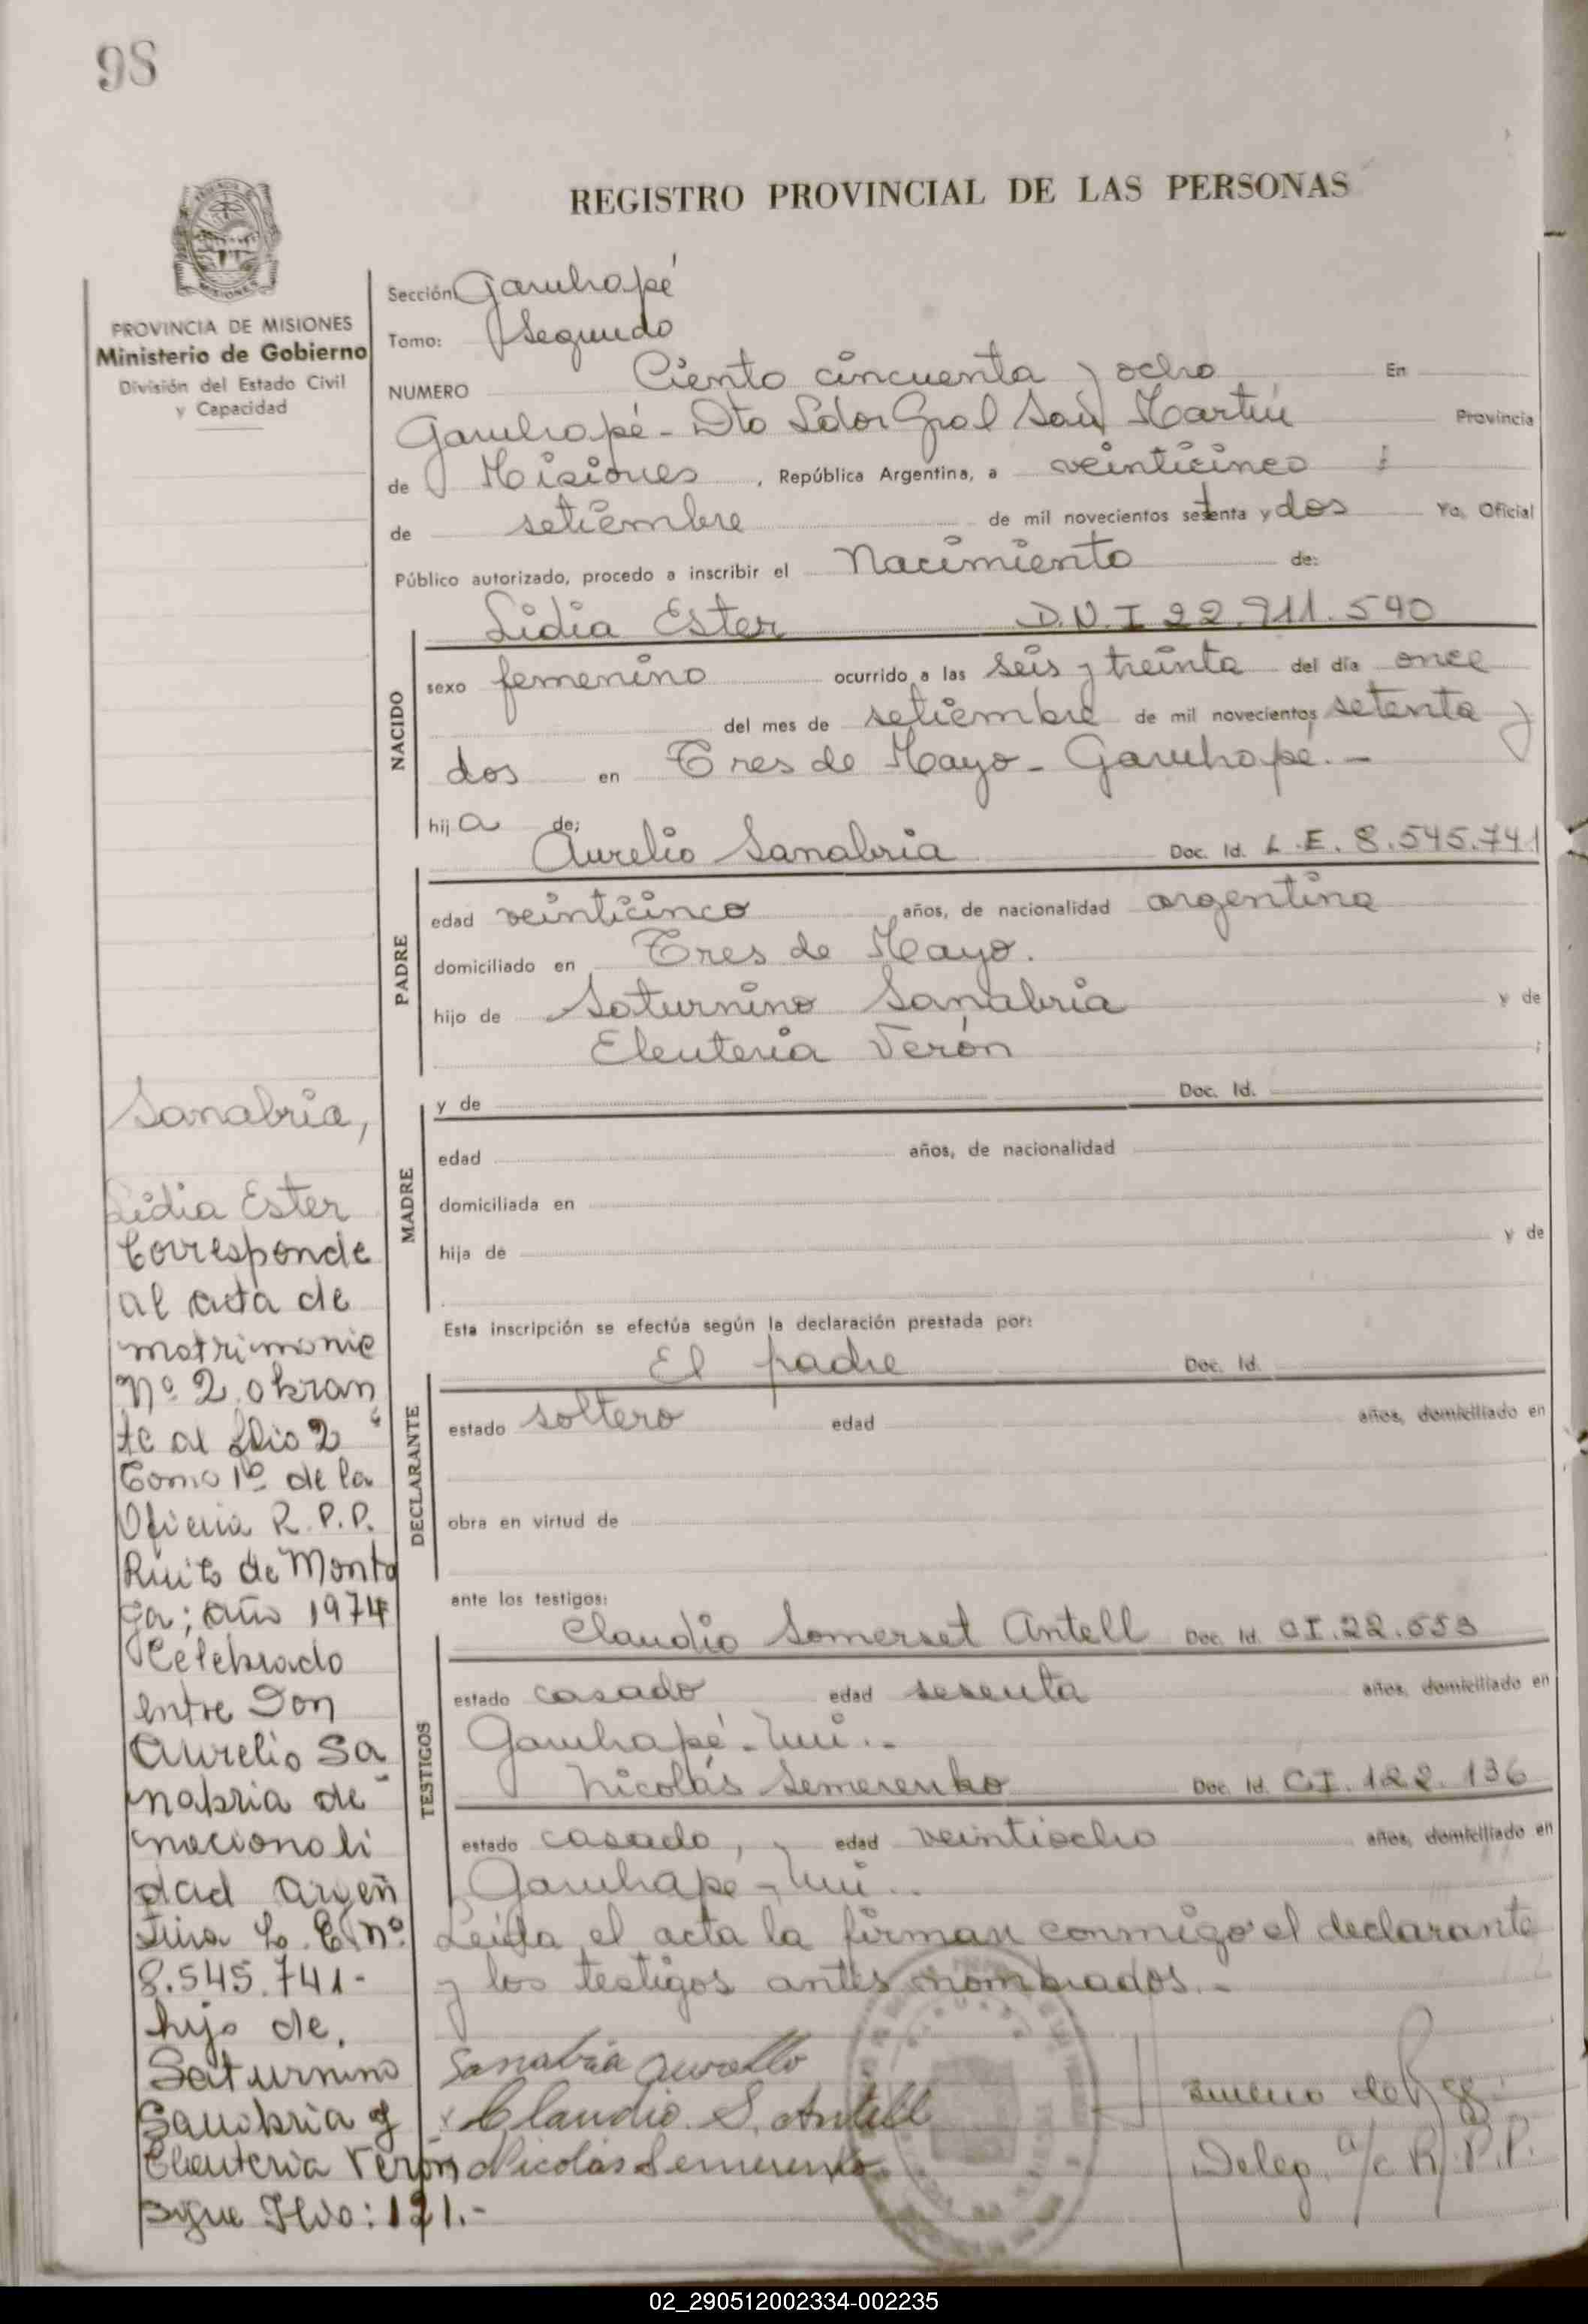 98
REGISTRO PROVINCIAL DE LAS PERSONAS
MISIONES
PROVINCIA DE MISIONES
Ministerio de Gobierno
División del Estado Civil
y Capacidad
Sección: Garuhapé
Tomo: Segundo
NUMERO Ciento cincuenta y ocho En
Garuhapé - Dto Ldor Gral San Martín Provincia
de Misiones, República Argentina, a veinticinco
de setiembre de mil novecientos setenta y dos Yo, Oficial
Público autorizado, procedo a inscribir el Nacimiento de:
Lidia Ester D.N.I 22.911.540
NACIDO
sexo femenino ocurrido a las seis y treinta del día once
del mes de setiembre de mil novecientos setenta y
dos en Tres de Mayo - Garuhapé. -
hija de:
Aurelio Sanabria Doc. Id. L.E. 8.545.741
PADRE
edad veinticinco años, de nacionalidad argentina
domiciliado en Tres de Mayo.
hijo de Saturnino Sanabria y de
Eleuteria Verón ;
MADRE
y de Doc. Id.
edad años, de nacionalidad
domiciliada en
hija de y de
Esta inscripción se efectúa según la declaración prestada por:
El padre Doc. Id.
DECLARANTE
estado soltero edad años, domiciliado en
obra en virtud de
ante los testigos:
Claudio Somerset Antell Doc. Id. CI.22.553
TESTIGOS
estado casado edad sesenta años, domiciliado en
Garuhapé-Mí.-
Nicolás Semerenko Doc. Id. CI. 122.136
estado casado, edad veintiocho años, domiciliado en
Garuhapé-Mí..
Leída el acta la firman conmigo el declarante
y los testigos antes nombrados.-
Sanabria Aurelio
Claudio. S. Antell
Nicolás Semerenko
Deleg. a/c R.P.P.
Sanabria,
Lidia Ester
Corresponde
al acta de
matrimonio
Nº 2 obran
te al flio 2
Tomo 1º de la
Oficina R.P.P.
Ruiz de Monto
ya; año 1974
Celebrado
entre Don
Aurelio Sa
nabria de
nacionali
dad argen
tina L.E. Nº
8.545.741-
hijo de.
Saturnino
Sanabria y
Eleuteria Verón
Sigue flio: 121.-
02_290512002334-002235